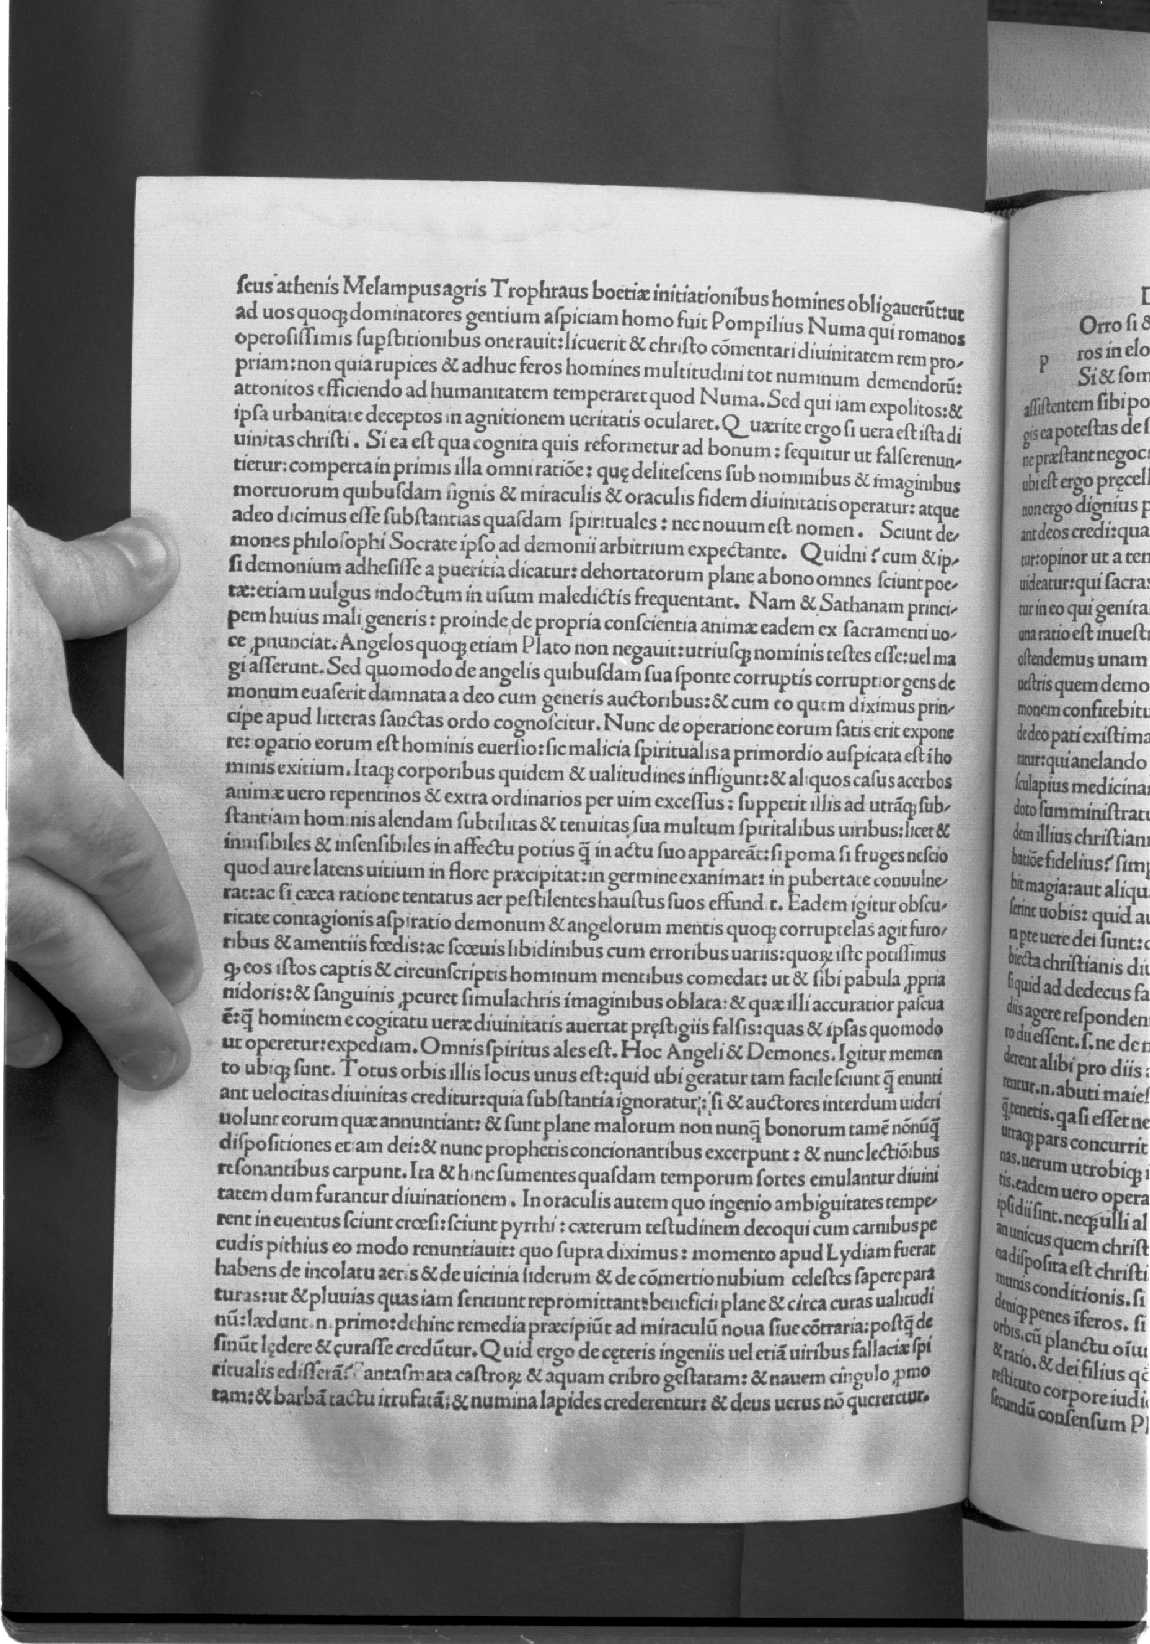 ſeus athenis Melampus agris Trophraus boetiæ initiationibus homines obligauerūt: ut
ad uos quoq; dominatores gentium aſpiciam homo fuit Pompilius Numa qui romanos
operoſiſſimis ſupſtitionibus onerauit: licuerit & chriſto cōmentari diuinitatem rem pro/
priam: non qui a rupices & adhuc feros homines multitudini tot numinum demendorū:
attonitos efficiendo ad humanitatem temperaret quod Numa. Sed qui iam expolitos: &
ipſa urbanitate deceptos in agnitionem ueritatis ocularet. Quærite ergo ſi uera eſt iſta di
uinitas chriſti. Si ea eſt qua cognita quis reformetur ad bonum: ſequitur ut falſe renun/
tietur: comperta in primis illa omni ratiōe: quę deliteſcens ſub nominibus & imaginibus
mortuorum quibuſdam ſignis & miraculis & oraculis fidem diuinitatis operatur: atque
adeo dicimus eſſe ſubſtantias quaſdam ſpirituales: nec nouum eſt nomen. Sciunt de/
mones philoſophi Socrate ipſo ad demonii arbitrium expectante. Quidni? cum & ip/
ſi demonium adheſiſſe a pueritia dicatur: dehortatorum plane a bono omnes ſciunt poe/
tæ: etiam uulgus indoctum in uſum maledictis frequentant. Nam & Sathanam princi/
pem huius mali generis: proinde de propria conſcientia animæ eadem ex ſacramenti uo/
ce ꝓnunciat. Angelos quoq; etiam Plato non negauit: utriuſq; nominis teſtes eſſe: uel ma
gi aſſerunt. Sed quomodo de angelis quibuſdam ſua ſponte corruptis corruptior gens de
monum euaſerit damnata a deo cum generis auctoribus: & cum eo quem diximus prin/
cipe apud litteras ſanctas ordo cognoſcitur. Nunc de operatione eorum ſatis erit expone
re: opatio eorum eſt hominis euerſio: ſic malicia ſpiritualis a primordio auſpicata eſt i ho
minis exitium. Itaq; corporibus quidem & ualitudines infligunt: & aliquos caſus acerbos
animæ uero repentinos & extra ordinarios per uim exceſſus: ſuppetit illis ad utrāq; ſub/
ſtantiam hominis alendam ſubtilitas & tenuitas ſua multum ſpiritalibus uiribus: licet &
inuiſibiles & inſenſibiles in affectu potius q̄ in actu ſuo appareāt: ſi poma ſi fruges neſcio
quod aure latens uitium in flore præcipitat: in germine exanimat: in pubertate conuulne/
rat: ac ſi cæca ratione tentatus aer peſtilentes hauſtus ſuos effundit. Eadem igitur obſcu/
ritate contagionis aſpiratio demonum & angelorum mentis quoq; corruptelas agit furo/
ribus & amentiis fœdis: ac ſcœuis libidinibus cum erroribus uariis: quoꝝ iſte potiſſimus
q; eos iſtos captis & circunſcriptis hominum mentibus comedat: ut & ſibi pabula ꝓpria
nidoris: & ſanguinis ꝓcuret ſimulachris imaginibus oblata: & quæ illi accuratior paſcua
ē: q̄ hominem e cogitatu ueræ diuinitatis auertat pręſtigiis falſis: quas & ipſas quomodo
ut operetur: expediam. Omnis ſpiritus ales eſt. Hoc Angeli & Demones. Igitur memen
to ubiq; ſunt. Totus orbis illis locus unus eſt: quid ubi geratur tam facile ſciunt q̄ enunti
ant uelocitas diuinitas creditur: quia ſubſtantia ignoratur: ſi & auctores interdum uideri
uolunt eorum quæ annuntiant: & ſunt plane malorum non nunq̄ bonorum tamē nōnūq̄
diſpoſitiones etiam dei: & nunc prophetis concionantibus excerpunt: & nunc lectiōibus
reſonantibus carpunt. Ita & hinc ſumentes quaſdam temporum ſortes emulantur diuini
tatem dum furantur diuinationem. In oraculis autem quo ingenio ambiguitates tempe/
rent in euentus ſciunt crœſi: ſciunt pyrrhi: cæterum teſtudinem decoqui cum carnibus pe
cudis pithius eo modo renuntiauit: quo ſupra diximus: momento apud Lydiam fuerat
habens de incolatu aeris & de uicinia ſiderum & de cōmertio nubium celeſtes ſapere para
turas: ut & pluuias quas iam ſentiunt repromittant: beneficii plane & circa curas ualitudi
nū: lædunt .n. primo: dehinc remedia præcipiūt ad miraculū noua ſiue cōtraria: poſtq̄ de
ſinūt lędere & curaſſe credūtur. Quid ergo de cęteris ingeniis uel etiā uiribus fallaciæ ſpi
ritualis ediſſerā? antaſmata caſtroꝝ & aquam cribro geſtatam: & nauem cingulo ꝓmo
tam: & barbā tactu irrufatā; & numina lapides crederentur: & deus uerus nō quereretur.
Orro ſi &
p ros in elo
Si & ſom
aſſiſtentem ſibi po
gis ea poteſtas de ſ
ne præſtant negoc
ubi eſt ergo pręcell
non ergo dignius p
ant deos credi: qua
tur: opinor ut a tem
uideatur: qui ſacra
tur in eo qui genita
una ratio eſt inueſti
oſtendemus unam
ueſtris quem demo
monem confitebitu
de deo pati exiſtima
tatur: qui anelando
ſculapius medicina
doto ſumminiſtratu
dem illius chriſtian
batiōe fidelius? ſimp
bit magia: aut aliqu
ſerint uobis: quid au
ra pte uere dei ſunt: c
biecta chriſtianis diu
ſi quid ad dedecus fa
diis agere reſponden
ro dii eſſent. ſ. ne de m
derent alibi pro diis:
tatur .n. abuti maieſ
q̄ tenetis. qa ſi eſſet ne
utraq; pars concurrit
nas. uerum utrobiq; i
tis. eadem uero opera
ipſi dii ſint. neq; ulli al
an unicus quem chriſt
na diſpoſita eſt chriſti
munis conditionis. ſi
deniq; penes īferos. ſi
orbis. cū planctu oīu
& ratio. & dei filius q
reſtituto corpore iudi
ſecundū conſenſum Pl